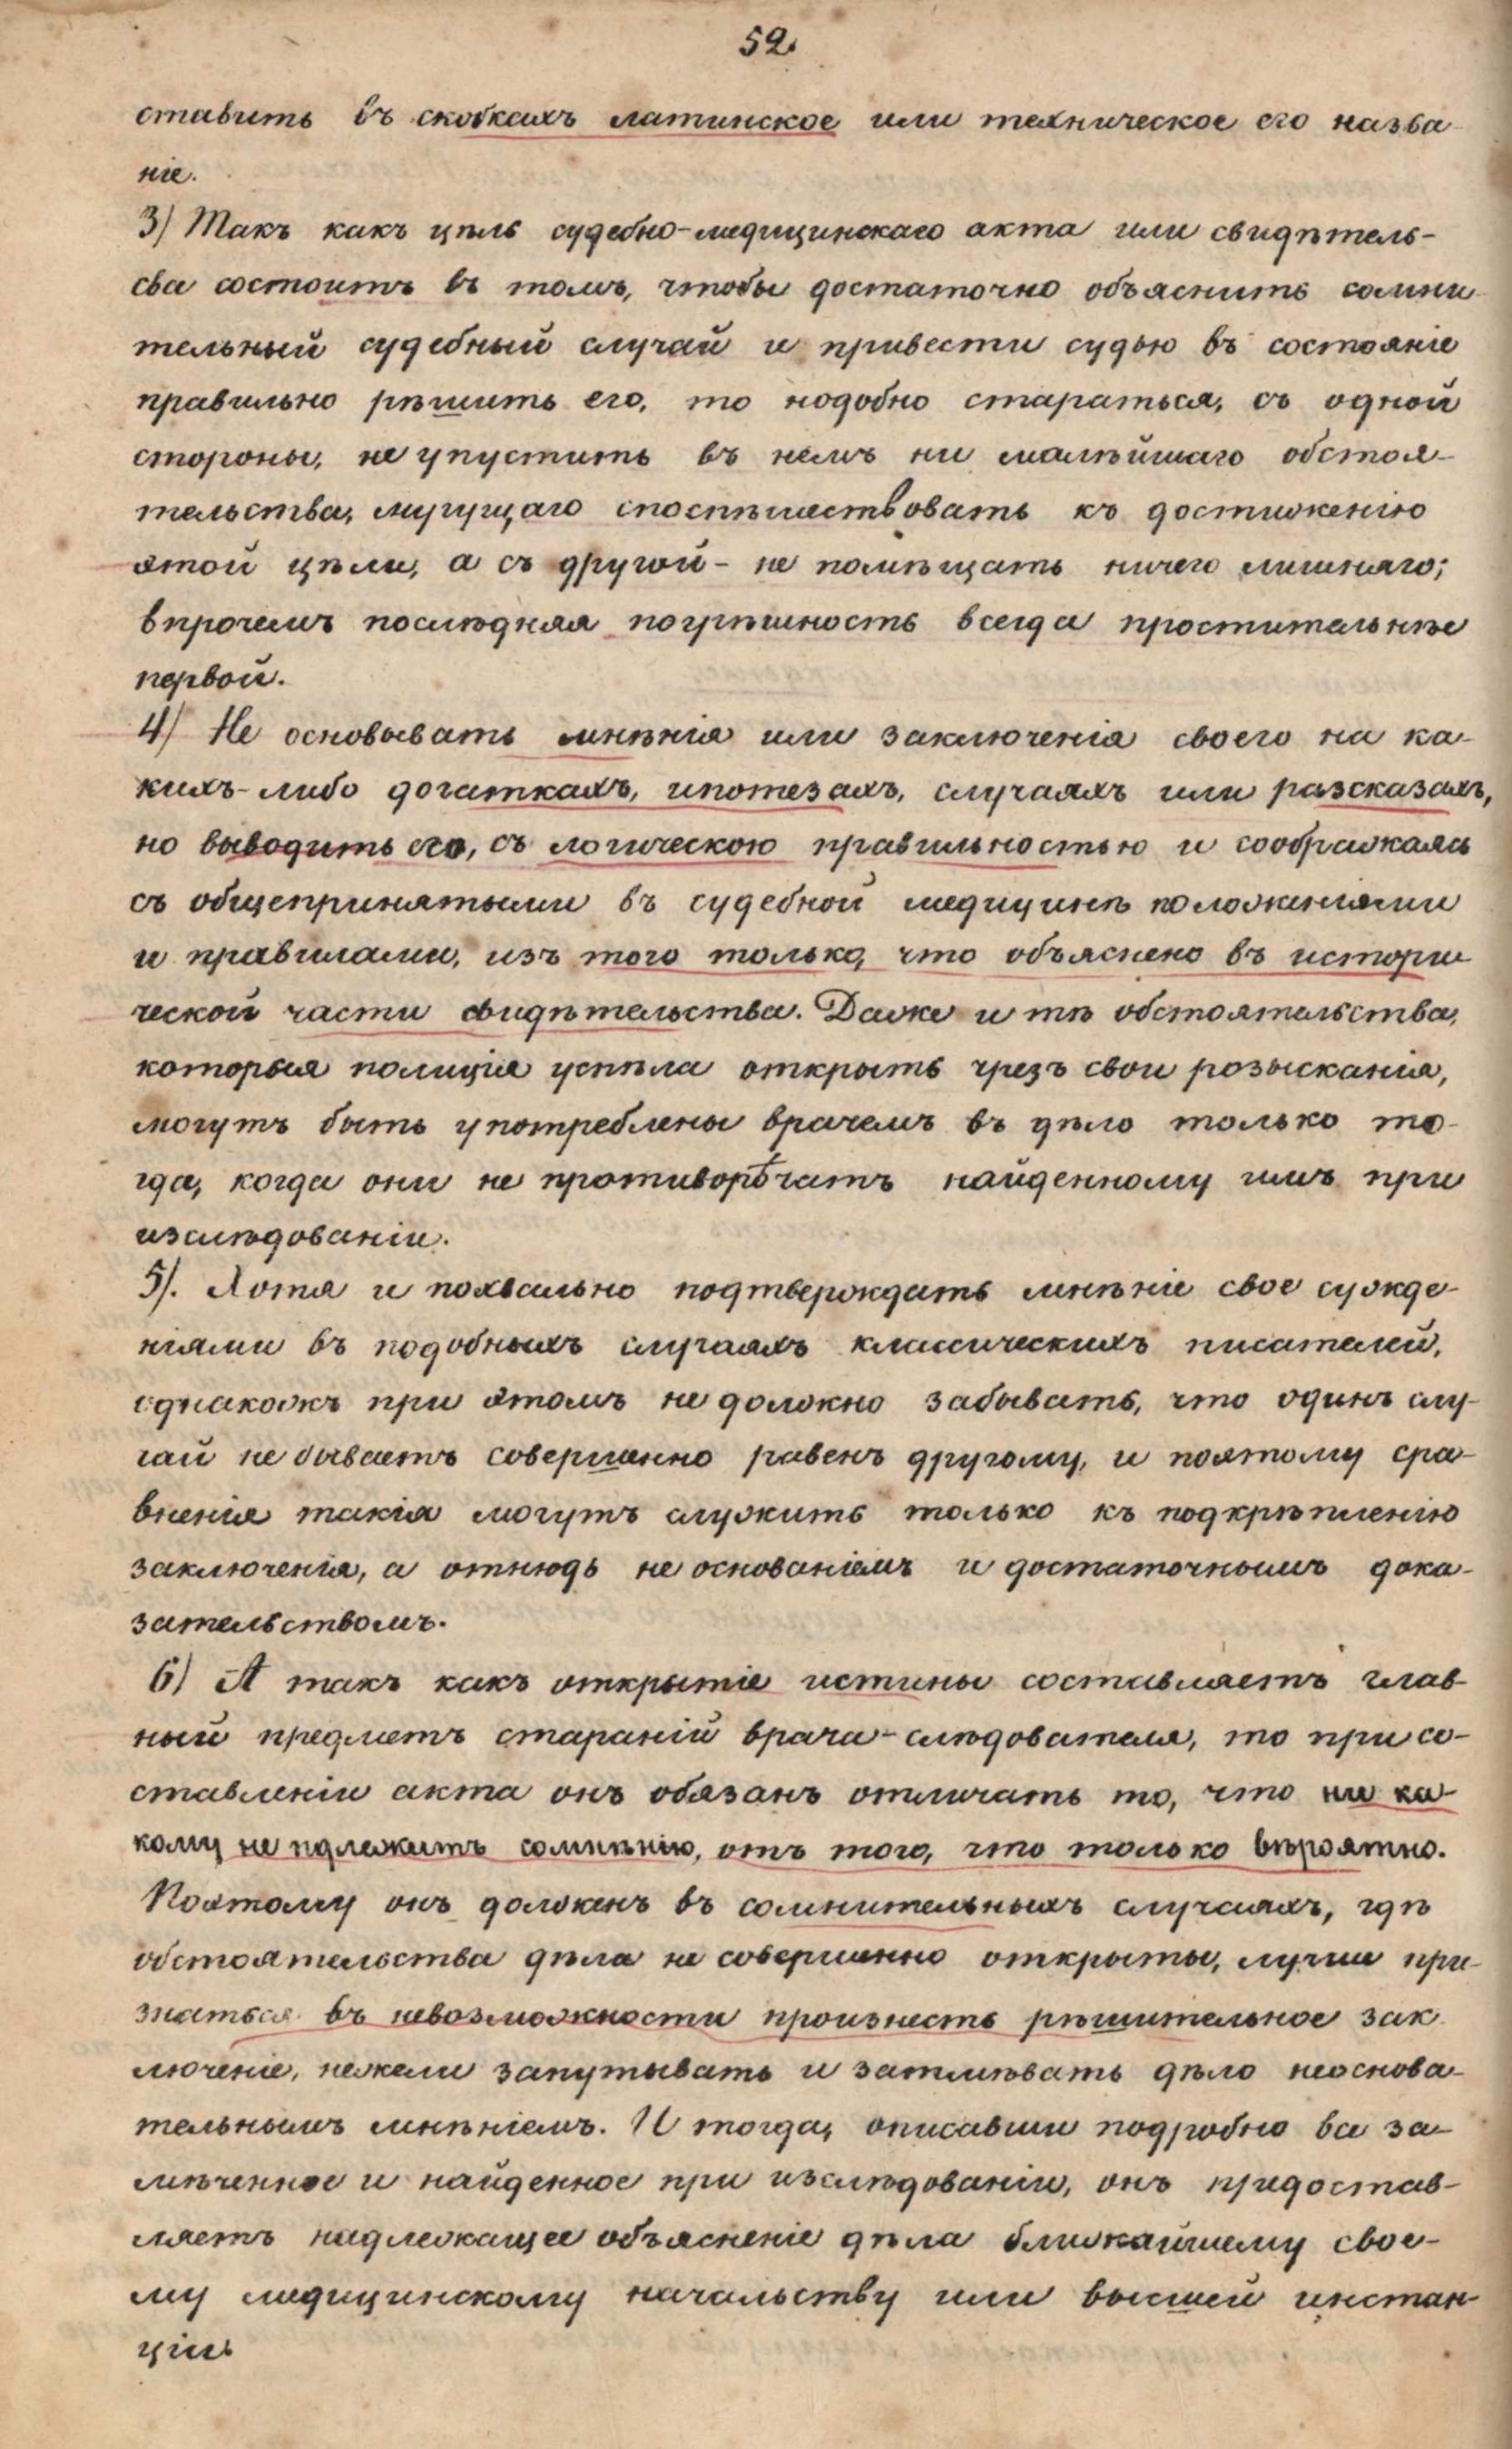 52.
ставить въ скобкахъ латинское или техническое его назва-
ніе.
3) Такъ какъ цѣль судебно-медицинскаго акта или свидѣтель-
сва состоитъ въ томъ, чтобы достаточно объяснить сомни-
тельный судебный случай и привести судью въ состояніе
правильно рѣшить его, то нодобно стараться, съ одной
стороны, не упустить въ немъ ни малѣйшаго обстоя-
тельства, могущаго споспѣшествовать къ достиженію
этой цѣли, а съ другой - не помѣщать ничего лишняго;
впрочемъ послѣдняя погрѣшность всегда простительнѣе
первой.
4) Не основывать мнѣнія или заключенія своего на ка-
кихъ-либо догаткахъ, ипотезахъ, случаяхъ или разсказахъ,
но выводить его, съ логическою правильностью и соображаясь
съ общепринятыми въ судебной медицинѣ положеніями
и правилами, изъ того только, что объяснено въ истори-
ческой части свидѣтельства. Даже и тѣ обстоятельства,
которыя полиція успѣла открыть чрезъ свои розысканія,
могутъ быть употреблены врачемъ въ дѣло только то-
гда, когда они не противорѣчатъ найденному имъ при
изслѣдованіи.
5). Хотя и похвально подтверждать мнѣніе свое сужде-
ніями въ подобныхъ случаяхъ классическихъ писателей,
однакожъ при этомъ не должно забывать, что одинъ слу-
чай не бываетъ совершенно равенъ другому, и поэтому сра-
внения такія могутъ служить только къ подкрѣпленію
заключенія, а отнюдь не основаніемъ и достаточнымъ дока-
зательствомъ.
6) А такъ какъ открытіе истины составляетъ глав-
ный предметъ стараній врача-слѣдователя, то при со-
ставленіи акта онъ обязанъ отличать то, что ни ка-
кому не подлежитъ сомнѣнію, отъ того, что только вѣроятно.
Поэтому онъ долженъ въ сомнительныхъ случаяхъ, гдѣ
обстоятельства дѣла не совершенно открыты, лучше при-
знаться въ невозможности произнесть рѣшительное зак-
люченіе, нежели запутывать и затмѣвать дѣло неоснова-
тельнымъ мнѣніемъ. И тогда, описавши подробно все за-
мѣченное и найденное при изслѣдованіи, онъ предостав-
ляетъ надлежащее объясненіе дѣла ближайшему свое-
му медицинскому начальству или высшей инстан-
ціи.